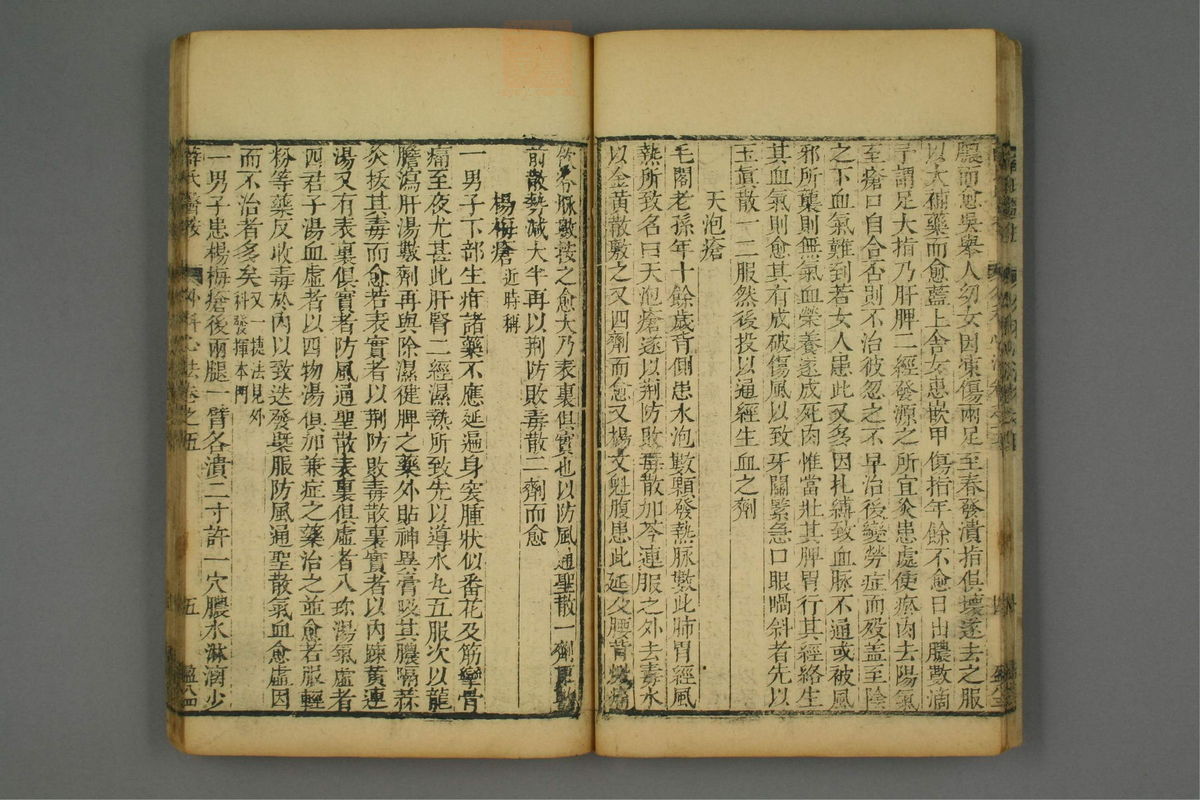 膿而愈吳舉人幼女因凍傷兩足至春發潰指俱壞遂去之服
以大補藥而愈藍上舍女患嵌甲傷指年餘不愈日出膿數滴
予謂足大指乃肝脾二經發源之所宜灸患處使瘀肉去陽氣
至瘡口自合否則不治彼忽之不早治後變勞症而歿盖至陰
之下血氣難到若女人患此又多因扎縛致血脉不通或被風
邪所襲則無氣血榮養遂成死肉惟當壯其脾胃行其經絡生
其血氣則愈其有成破傷風以致牙關緊急口眼喎斜者先以
玉眞散一二服然後投以通經生血之劑
天泡瘡
毛閣老孫年十餘歲背側患水泡數顆發熱脉數此肺胃經風
熱所致名曰天泡瘡遂以荆防敗毒散加芩連服之外去毒水
以金黄散敷之又四劑而愈又楊文魁腹患此延及腰背焮痛
飲冷脉數按之愈大乃表裏俱實也以防風通聖散一劑更敷
前散勢減大半再以荆防敗毒散二劑而愈
楊梅瘡近時稱
一男子下部生疳諸藥不應延遍身突腫狀似番花及筋攣骨
痛至夜尤甚此肝腎二經濕熱所致先以導水丸五服次以龍
膽瀉肝湯數劑再與除濕健脾之藥外貼神異膏吸其膿隔蒜
灸拔其毒而愈若表實者以荆防敗毒散裏實者以內踈黄連
湯又有表裏俱實者防風通聖散表裏俱虛者八珎湯氣虛者
四君子湯血虛者以四物湯俱加兼症之藥治之並愈若服輕
粉等藥反收毒於內以致迭發槩服防風通聖散氣血愈虛因
而不治者多矣又一捷法見外科發揮本門
一男子患楊梅瘡後兩腿一臂各潰二寸許一穴膿水淋滴少
薛氏醫按 外科心法卷之五 五